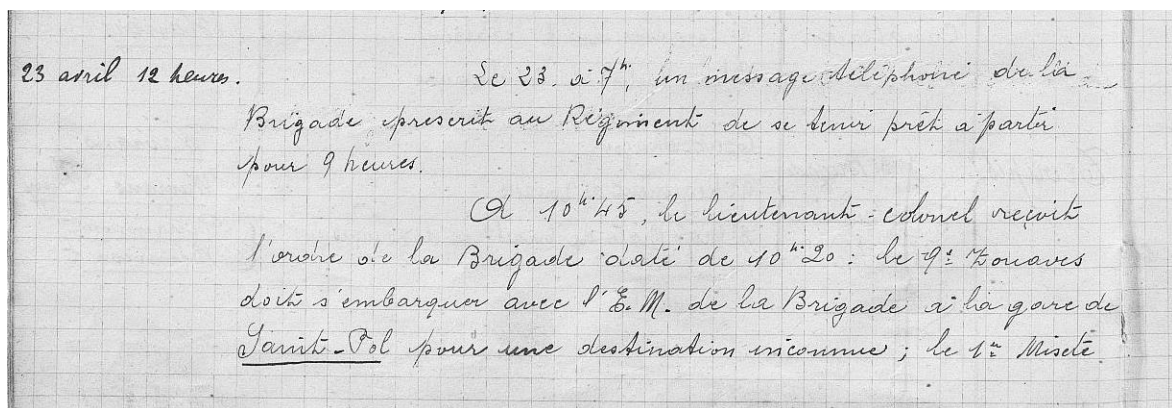 23 avril 12 heures. Le 23. à 7h, un message téléphoné de la
Brigade prescrit au Régiment de se tenir prêt à partir
pour 9 heures.
A 10h45, le lieutenant-colonel reçoit
l'ordre de la Brigade daté de 10h20 : le 9e Zouaves
doit s'embarquer avec l'E.M. de la Brigade à la gare de
Saint-Pol pour une destination inconnue ; le 1er Mixte